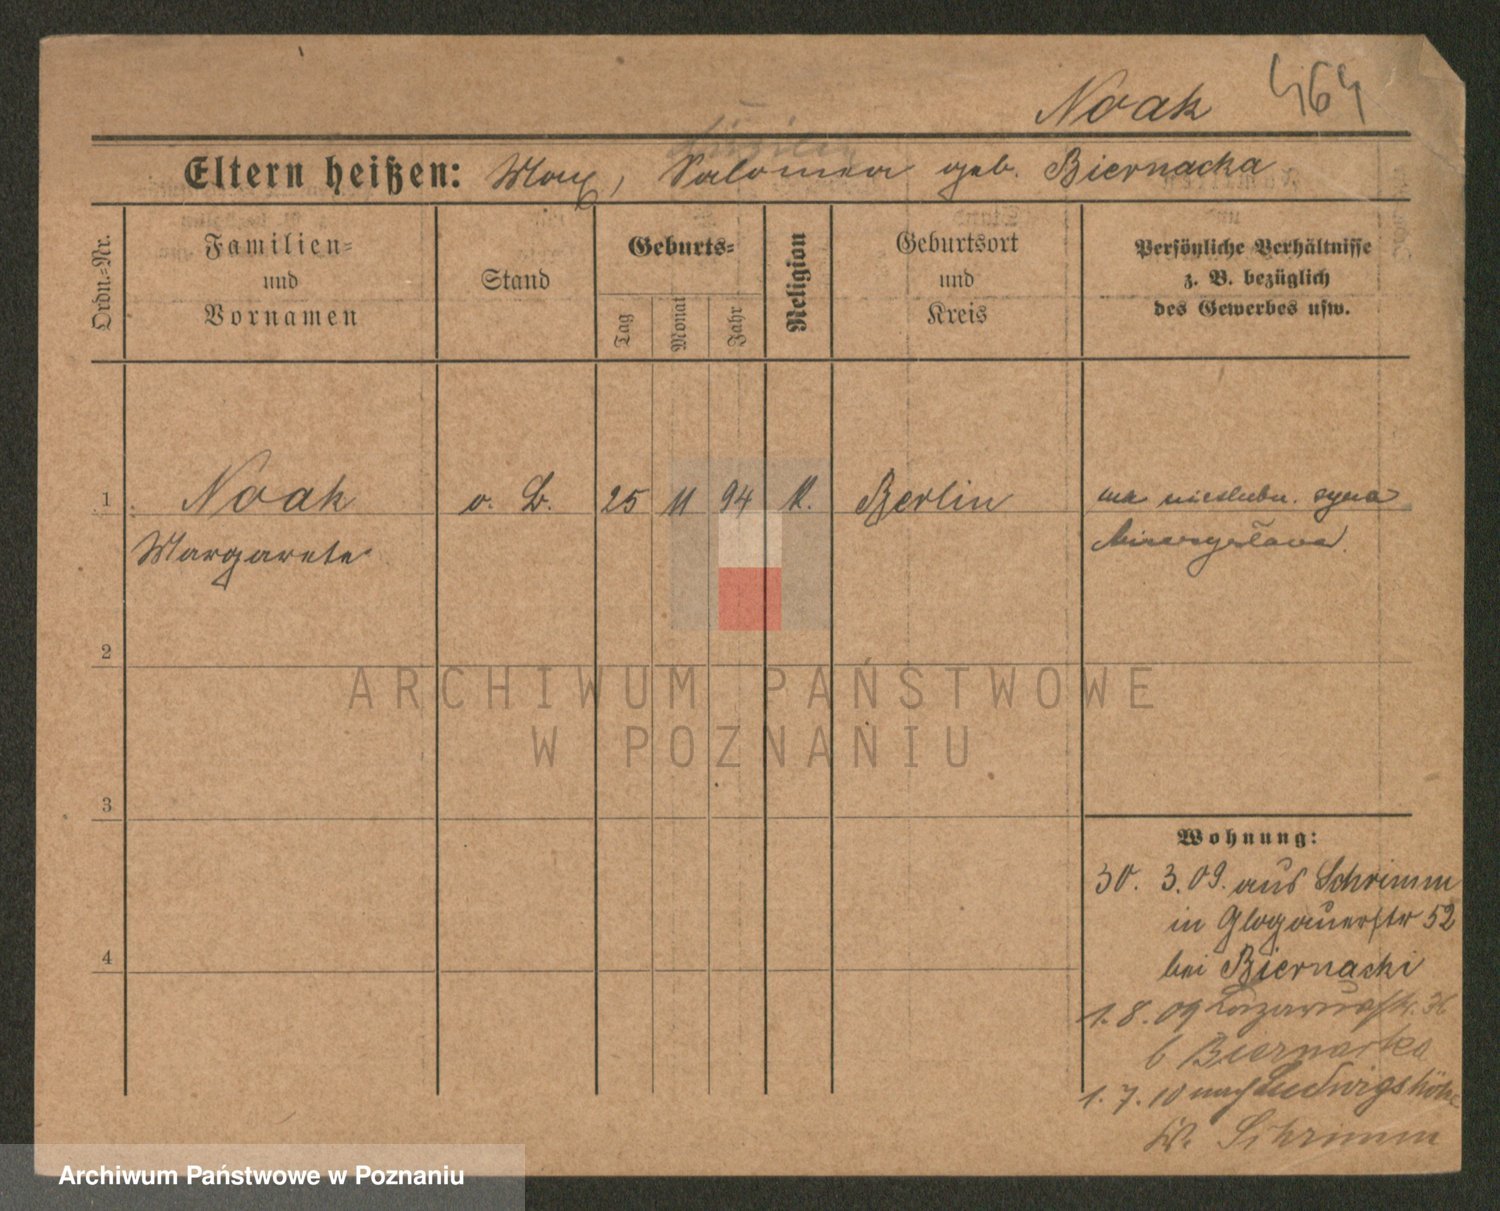 Noak 464
Eltern heißen: Max, Salomea geb. Biernacka
Ordn.-Nr.
Familien-
und
Vornamen
Stand
Geburts-
Tag
Monat
Jahr
Religion
Geburtsort
und
Kreis
Persönliche Verhältnisse
z. B. bezüglich
des Gewerbes usw.
1 Noak o. B. 25 11 94 K. Berlin ma nieslubn. syna
Margarete Mieczysława.
2
3
4
Wohnung:
30. 3. 09. aus Schrimm
in Glogauerstr 52
bei Biernacki
1. 8. 09 Lazarusstr. 36
b Biernacka
1. 7. 10 nach Ludwigshöhe
Kr. Schrimm
ARCHIWUM PAŃSTWOWE
W POZNANIU
Archiwum Państwowe w Poznaniu